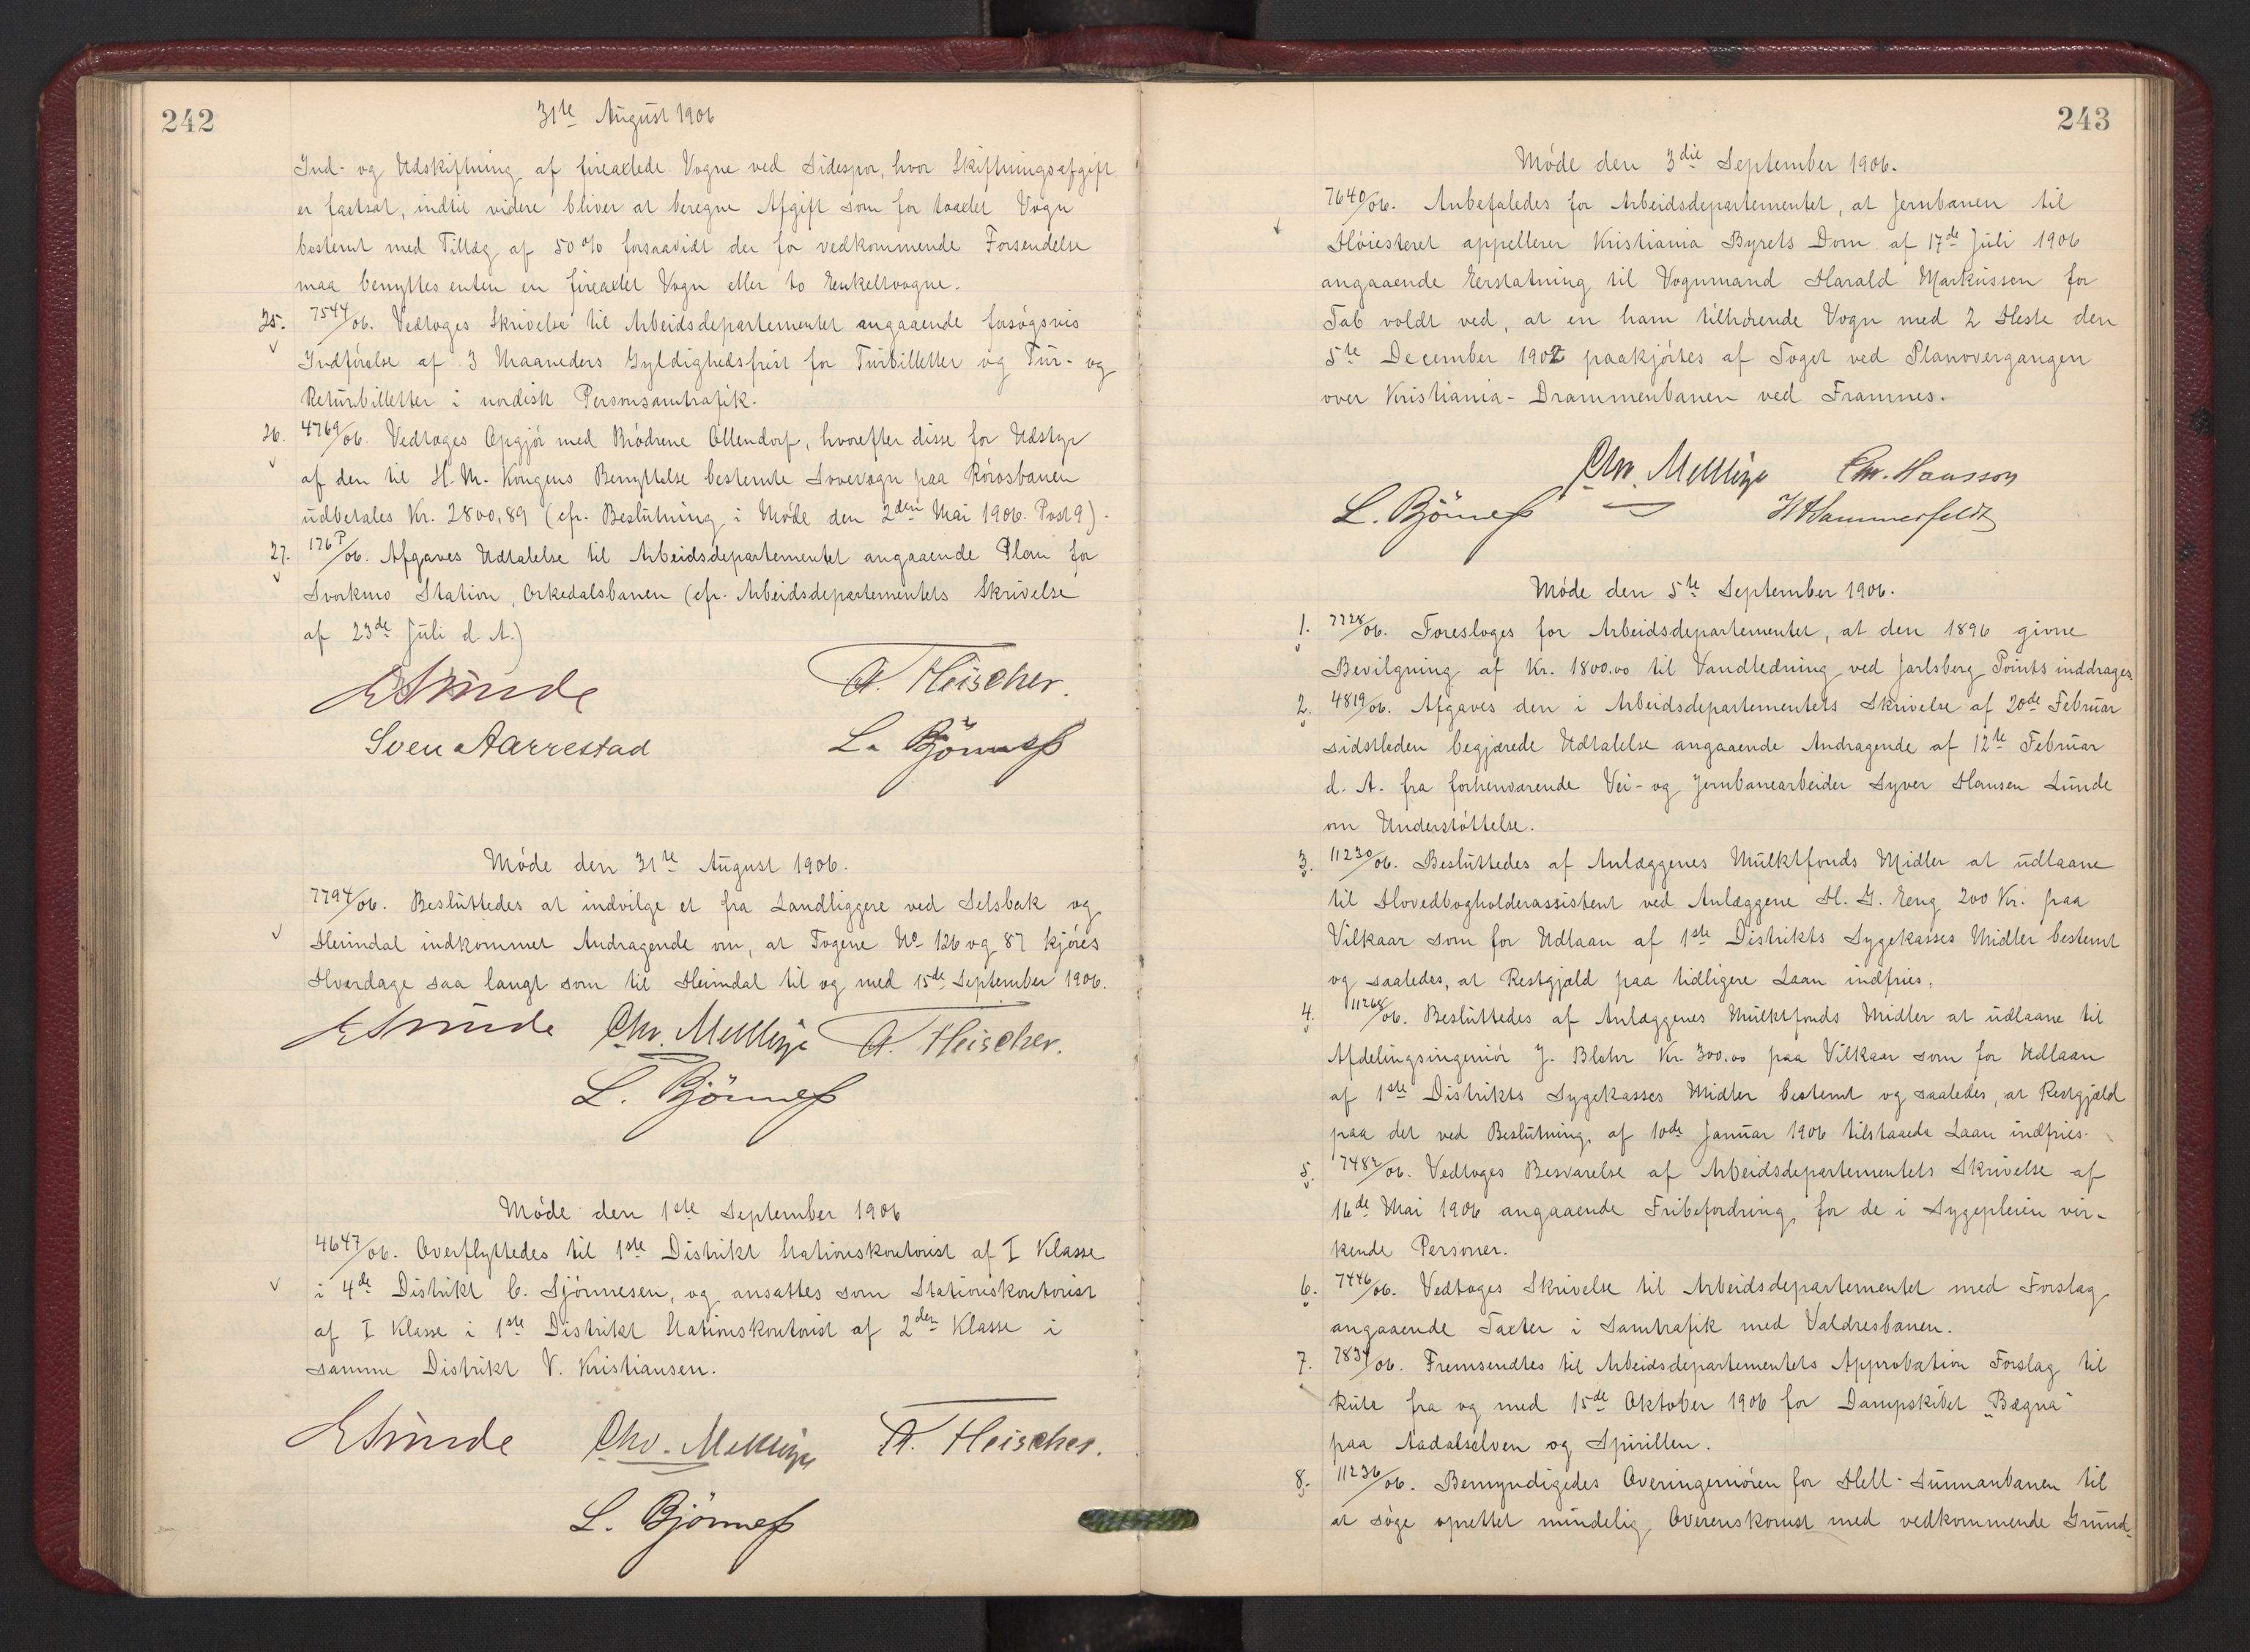 242
31te August 1906
Ind- og Udskiftning af fireaxlede Vogne ved Sidespor, hvor Skiftningsafgift
er fastsat, indtil videre bliver at beregne Afgift som for toaxlet Vogn
bestemt med Tillæg af 50 % forsaavidt der for vedkommende Forsendelse
maa benyttes enten en fireaxlet Vogn eller to Enkeltvogne.
25. 7544/06. Vedtoges Skrivelse til Arbeidsdepartementet angaaende forsøgsvis
Indførelse af 3 Maaneders Gyldighedsfrist for Turbilletter og Tur- og
Returbilletter i nordisk Personsamtrafik.
26. 4769/06. Vedtoges Opgjør med Brødrene Ollendorf, hvorefter disse for Udstyr
af den til H. M. Kongens Benyttelse bestemte Sovevogn paa Rørosbanen
udbetales Kr. 2800,89 (cfr. Beslutning i Møde den 2den Mai 1906. Post 9).
27. 176P/06. Afgaves Udtalelse til Arbeidsdepartementet angaaende Plan for
Svorkmo Station, Orkedalsbanen (cfr. Arbeidsdepartementets Skrivelse
af 23de Juli d. A.)
E Sunde A. Fleischer.
Sven Aarrestad L. Bjørness
Møde den 31te August 1906.
7794/06. Besluttedes at indvilge et fra Landliggere ved Selsbak og
Heimdal indkommet Andragende om, at Togene No 126 og 87 kjøres
Hverdage saa langt som til Heimdal til og med 15de September 1906.
E Sunde Chr. A. Fleischer.
L. Bjørness
Møde den 1ste September 1906
4647/06. Overflyttedes til 1ste Distrikt Stationskontorist af I Klasse
i 4de Distrikt C. Sjønnesen, og ansattes som Stationskontorist
af I Klasse i 1ste Distrikt Stationskontorist af 2den Klasse i
samme Distrikt V. Kristiansen.
E Sunde Chr. A. Fleischer.
L. Bjørness
243
Møde den 3die September 1906.
7640/06. Anbefaledes for Arbeidsdepartementet, at Jernbanen til
Høiesteret appellerer Kristiania Byrets Dom af 17de Juli 1906
angaaende Erstatning til Vognmand Harald Markussen for
Tab voldt ved, at en ham tilhørende Vogn med 2 Heste den
5te December 1902 paakjørtes af Toget ved Planovergangen
over Kristiania-Drammenbanen ved Framnes.
Chr. Chr. Hansson
L. Bjørness H Hammerfeldt
Møde den 5te September 1906.
1. 7728/06. Foresloges for Arbeidsdepartementet, at den 1896 givne
Bevilgning af Kr. 1800.00 til Vandledning ved Jarlsberg Points inddrages.
2. 4819/06. Afgaves den i Arbeidsdepartementets Skrivelse af 20de Februar
sidstleden begjærede Udtalelse angaaende Andragende af 12te Februar
d. A. fra forhenværende Vei- og Jernbanearbeider Syver Hansen Lunde
om Understøttelse.
3. 11230/06. Besluttedes af Anlæggenes Mulktfonds Midler at udlaane
til Hovedbogholderassistent ved Anlæggene H. G. Eeng 200 Kr. paa
Vilkaar som for Udlaan af 1ste Distrikts Sygekasses Midler bestemt
og saaledes, at Restgjæld paa tidligere Laan indfries.
4. 11268/06. Besluttedes af Anlæggenes Mulktfonds Midler at udlaane til
Afdelingsingeniør J. Blehr Kr. 300.00 paa Vilkaar som for Udlaan
af 1ste Distrikts Sygekasses Midler bestemt og saaledes, at Restgjæld
paa det ved Beslutning af 10de Januar 1906 tilstaaede Laan indfries.
5. 7482/06. Vedtoges Besvarelse af Arbeidsdepartementets Skrivelse af
16de Mai 1906 angaaende Fribefordring for de i Sygepleien vir-
kende Personer.
6. 7446/06. Vedtoges Skrivelse til Arbeidsdepartementet med Forslag
angaaende Taxter i Samtrafik med Valdresbanen.
7. 7834/06. Fremsendtes til Arbeidsdepartementets Approbation Forslag til
Rute fra og med 15de Oktober 1906 for Dampskibet "Bægna"
paa Aadalselven og Spirillen.
8. 11236/06. Bemyndigedes Overingeniøren for Hell-Sunnanbanen til
at søge oprettet mindelig Overenskomst med vedkommende Grund-